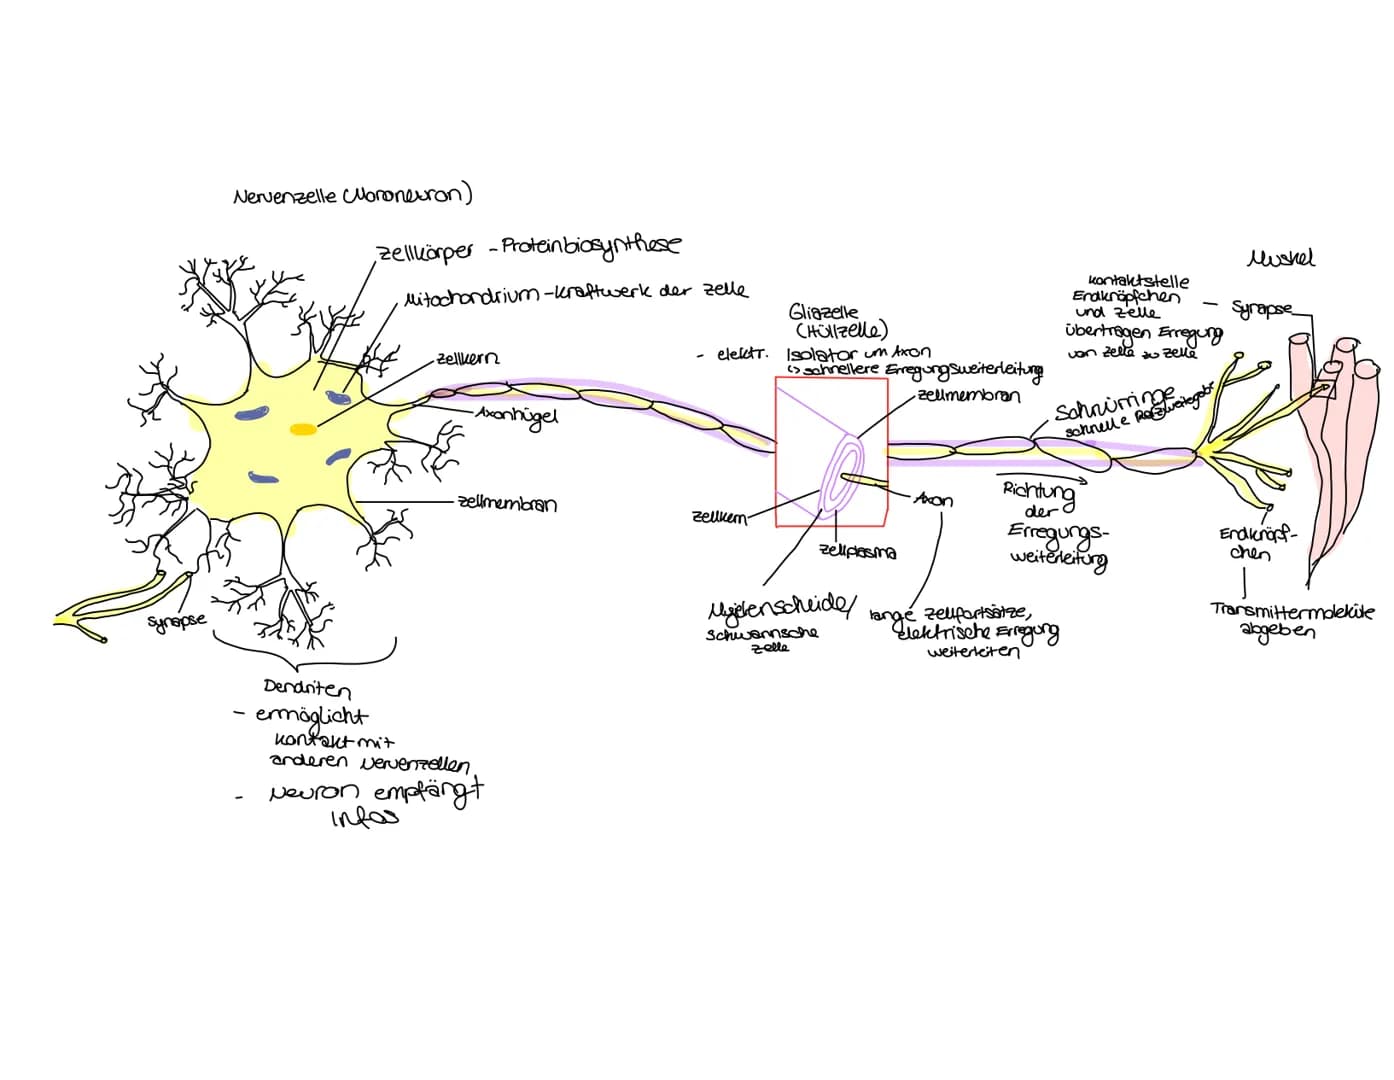 Nervenzelle (Motoneuron)
Zellkörper - Proteinbiosynthese
Mitochondrium - Kraftwerk der Zelle
Zellkern
Axonhügel
Zellmembran
Synapse
Dendriten
- ermöglicht
Kontakt mit
anderen Nervenzellen
- Neuron empfängt
Infos
Gliazelle
(Hüllzelle)
- elektr. Isolator um Axon
↳ schnellere Erregungsweiterleitung
Zellmembran
Zellkern
Zellplasma
Axon
Myelinscheide/
Schwannsche
Zelle
lange Zellfortsätze,
elektrische Erregung
weiterleiten
Schnürringe
schnelle Reizweitergabe
Richtung
der
Erregungs-
weiterleitung
Muskel
Kontaktstelle
Endknöpfchen
und Zelle
übertragen Erregung
von Zelle zu Zelle
- Synapse
Endknöpf-
chen
Transmittermoleküle
abgeben